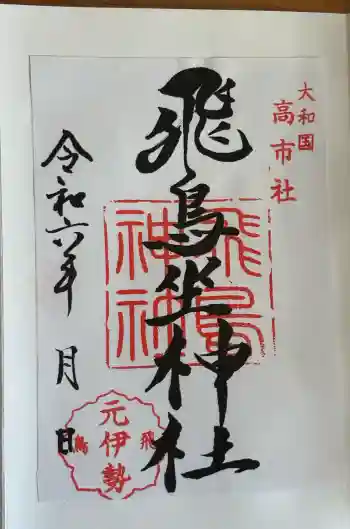 大和国
高市社
飛鳥坐神社
飛鳥
神社
令和六年 月 日
飛鳥
元伊勢